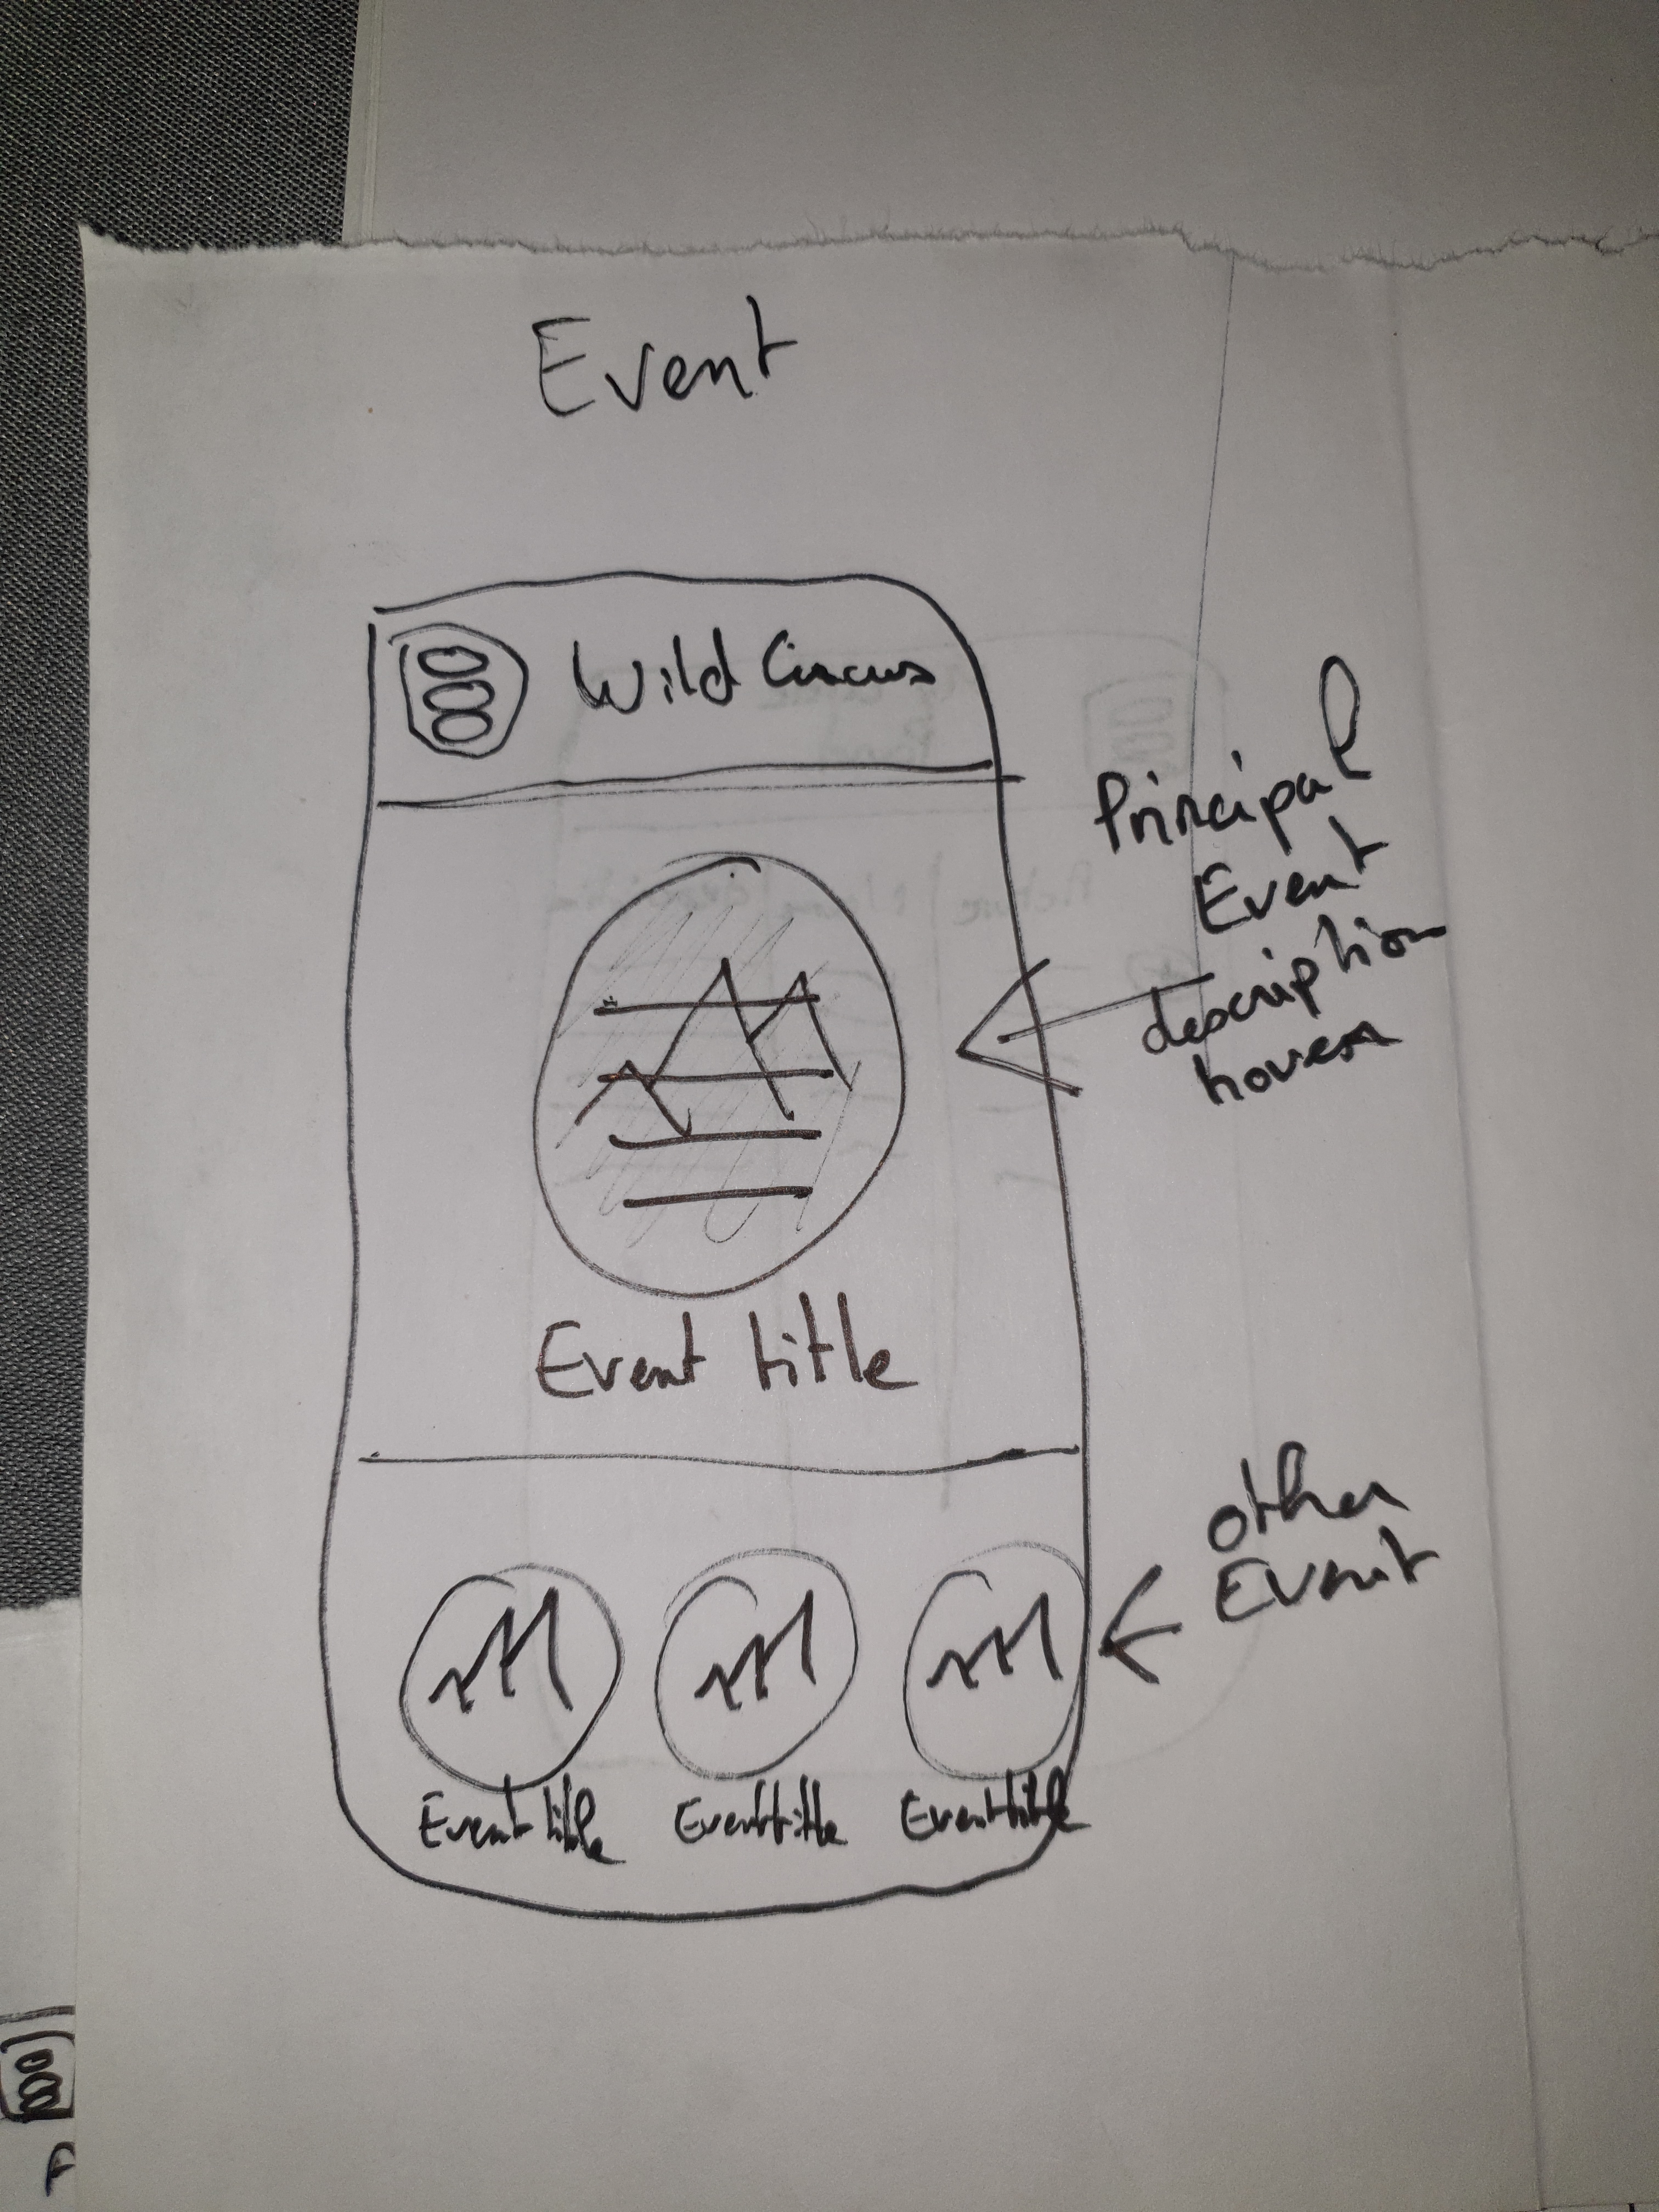 Event
Wild Circus
Principal
Event
description
hover
Event title
other
Event
Event title
Event title
Event title